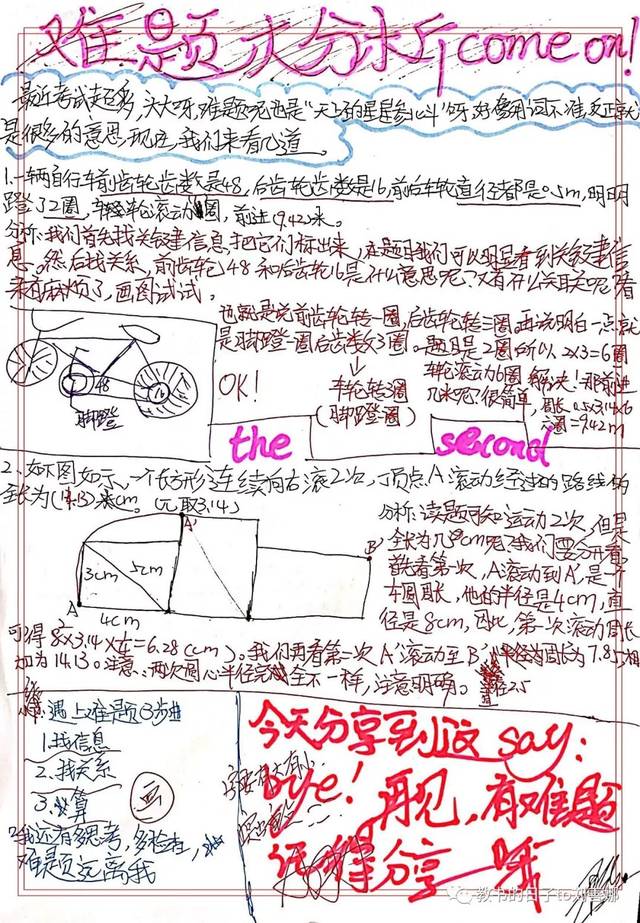 难题大分析come on!
最近考试起多,头大呀,难题呢也是“天上的星星参北斗”呀,好像用词不准,反正就
是很多的意思,现在,我们来看几道。
1.一辆自行车前齿轮齿数是48,后齿轮齿数是16,前后车轮直径都是0.5m,明明
蹬了2圈,车轮滚动圈,前进9.42米。
分析:我们首先找关键信息,把它们标出来,在题目我们可以明显看到关键信
息。然后找关系,前齿轮48和后齿轮16是什么意思呢?又有什么关联呢?看
来有麻烦了,画图试试。
48
16
脚蹬
也就是说前齿轮转一圈,后齿轮转三圈。再说明白一点就
是脚蹬一圈后齿数3圈。题目是2圈所以2×3=6圈
OK!
车轮转3圈
(脚蹬圈)
车轮滚动6圈 解决!那前进
几米呢?很简单,周长0.5×3.14×6
=9.42m
the second
2、如下图如示、一个长方形连续向右滚2次,顶点A滚动经过的路线的
全长为(14.13)cm。(π取3.14)
A'
B'
3cm
5cm
A
4cm
分析:读题可知运动2次,但是
全长为几cm呢?我们要分开看
首先看第一次,A滚动到A',是一个
圆周长,他的半径是4cm,直
径是8cm,因此,第一次滚动周长
可得8×3.14×¼=6.28(cm)。我们再看第二次A'滚动至B',半径为周长为7.85,相
加为14.13。注意、两次圆心半径完全不一样,注意明确。
1、遇上难题3步走
1.找信息
2.找关系
3.计算
画
2.我还有多思考,多检查,
难题远离我
今天分享到这 say:
bye!再见,有难题
记得分享哦
教书的日子to刘善娜